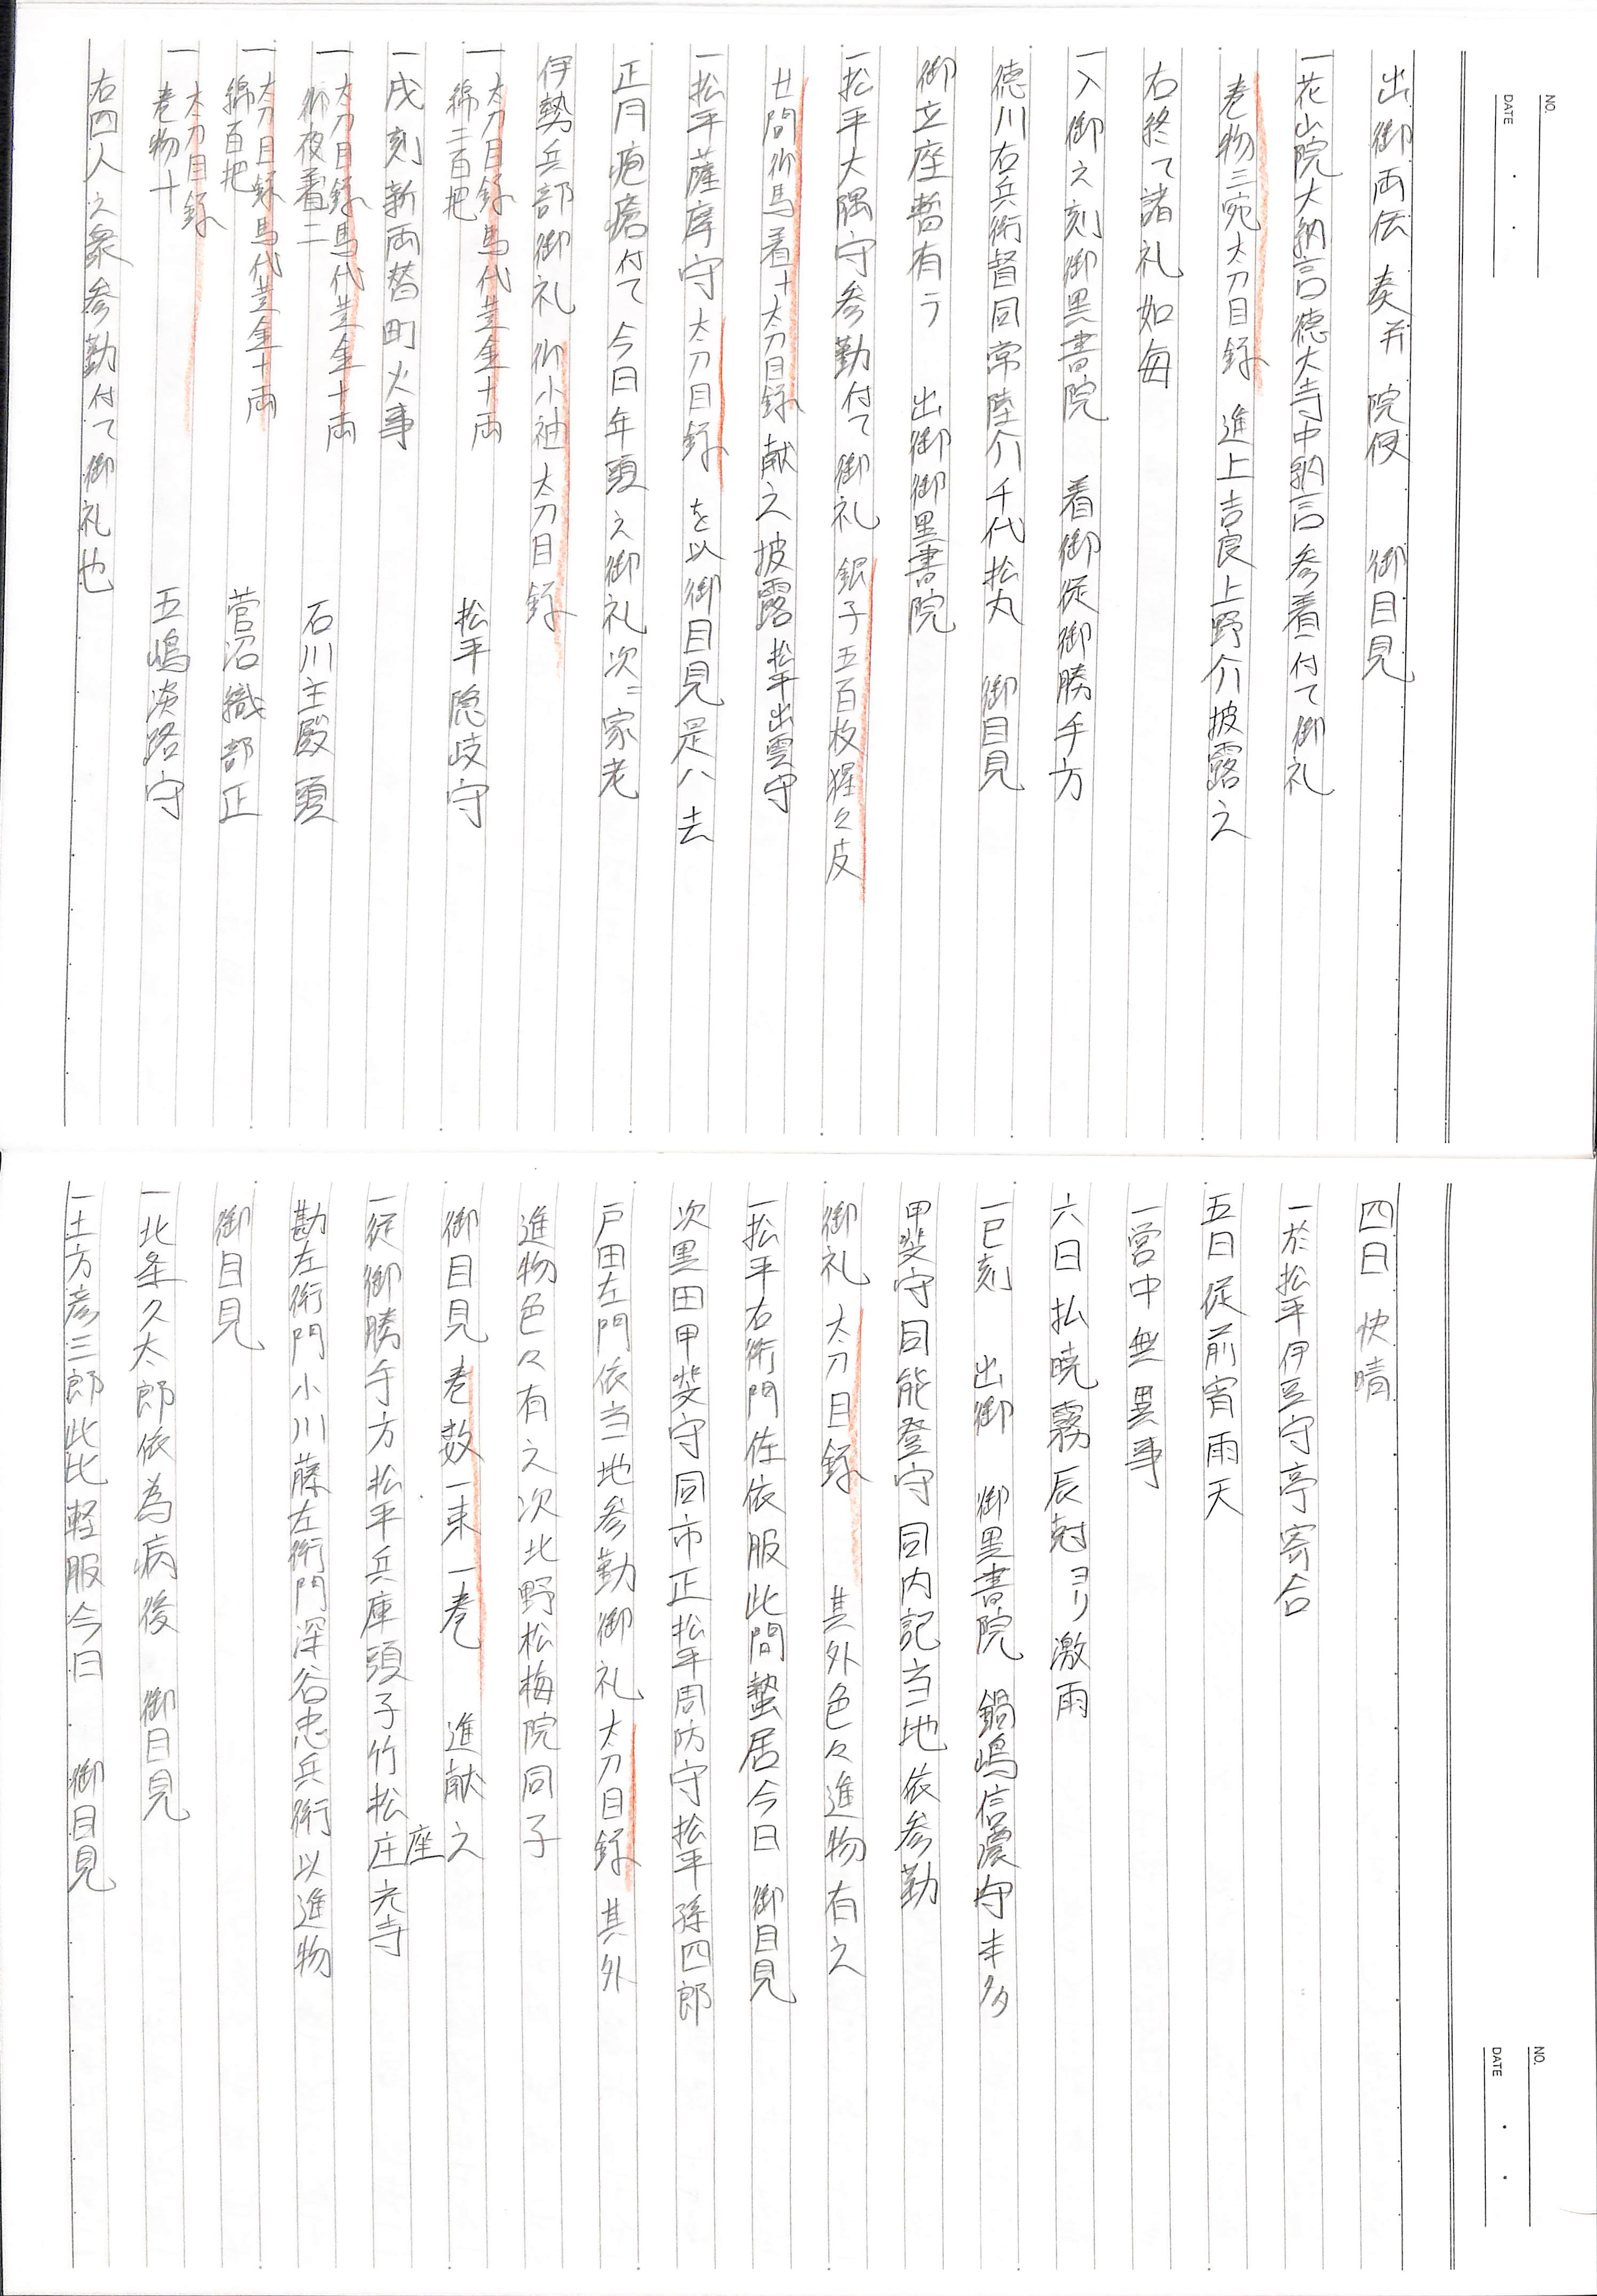 NO.
DATE
出御両伝 奏并 院使 御目見
一花山院大納言徳大寺中納言参着付て御礼
巻物三宛太刀目録 進上吉良上野介披露之
右終て諸礼如毎
一入御之刻御黒書院 着御従御勝手方
徳川右兵衛督同常陸介千代松丸 御目見
御立座暫有テ 出御御黒書院
一松平大隅守参勤付て御礼 銀子五百枚猩々皮
廿間御馬着十太刀目録 献之披露松平出雲守
一松平薩摩守太刀目録 を以御目見是ハ去
正月疱瘡付て今日年頭之御礼次ニ家老
伊勢兵部御礼 御小袖太刀目録
一太刀目録馬代黄金十両
綿二百把 松平隠岐守
一戌刻新両替町火事
一太刀目録馬代黄金十両
御夜着二 石川主殿頭
一太刀目録馬代黄金十両
綿百把 菅沼織部正
一太刀目録
巻物十 五嶋淡路守
右四人之衆参勤付て御礼也
NO.
DATE
四日 快晴
一於松平伊豆守亭寄合
五日従前宵雨天
一営中無異事
六日払暁霧辰尅ヨリ激雨
一巳刻 出御 御黒書院 鍋嶋信濃守本多
甲斐守同能登守同内記当地依参勤
御礼 太刀目録 其外色々進物有之
一松平右衛門佐依服此間蟄居今日 御目見
次黒田甲斐守同市正松平周防守松平孫四郎
戸田左門依当地参勤御礼太刀目録 其外
進物色々有之次北野松梅院同子
御目見巻数一束一巻 進献之
座
一従御勝手方松平兵庫頭子竹松庄光寺
勘左衛門小川藤左衛門深谷忠兵衛以進物
御目見
一北条久太郎依為病後 御目見
一土方彦三郎此比軽服今日 御目見